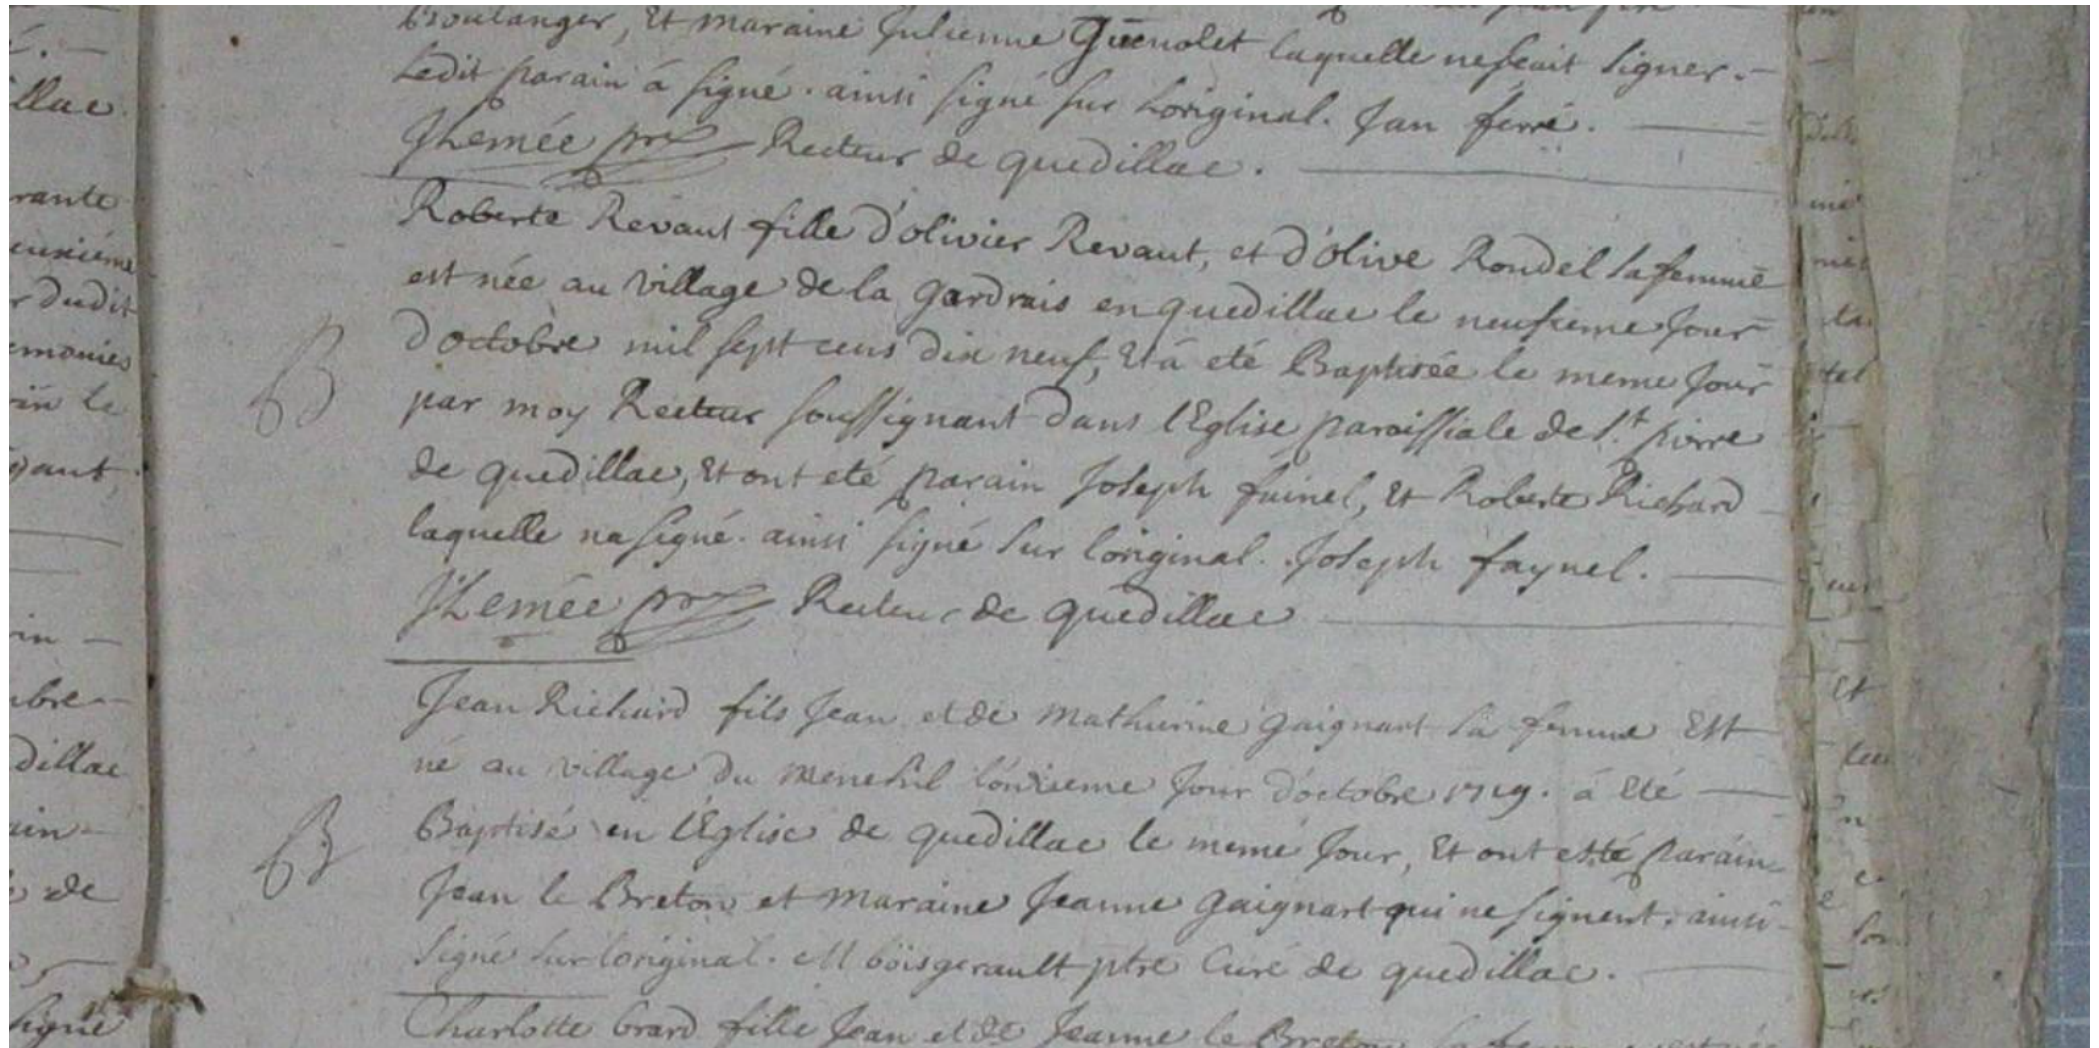 Boulanger, Et maraine Julienne Guenolet laquelle nesçait signer.
Ledit parain á signé. ainsi signé sur Loriginal. Jan ferré.
JLemée Recteur de quedillac.
Roberte Revaut fille d'olivier Revaut, et d'olive Rondel sa femme
est née au village de la gardrais en quedillac le neufieme Jour
d'octobre mil sept cens dix neuf, Et á eté Baptisée le meme Jour
par moy Recteur soussignant dans l'Eglise paroissiale de St. pierre
de quedillac, Et ont eté parain Joseph fainel, Et Roberte Richard
laquelle na signé. ainsi signé sur l'original. Joseph faynel.
JLemée Recteur de quedillac
Jean Richard fils Jean et de mathurine gaignart sa femme Est
né au village du menehil l'onzieme Jour d'octobre 1719. á Eté
Baptisé en l'Eglise de quedillac le meme Jour, Et ont esté parain
Jean le Breton et maraine Jeanne gaignart qui ne signent. ainsi
signé sur l'original. M boisgerault ptre Curé de quedillac.
Charlotte fille Jean et de Jeanne le Breton
llac
rante
euxiéme
dudit
emonies
in le
in
bre
dillac
de
signé
B
B